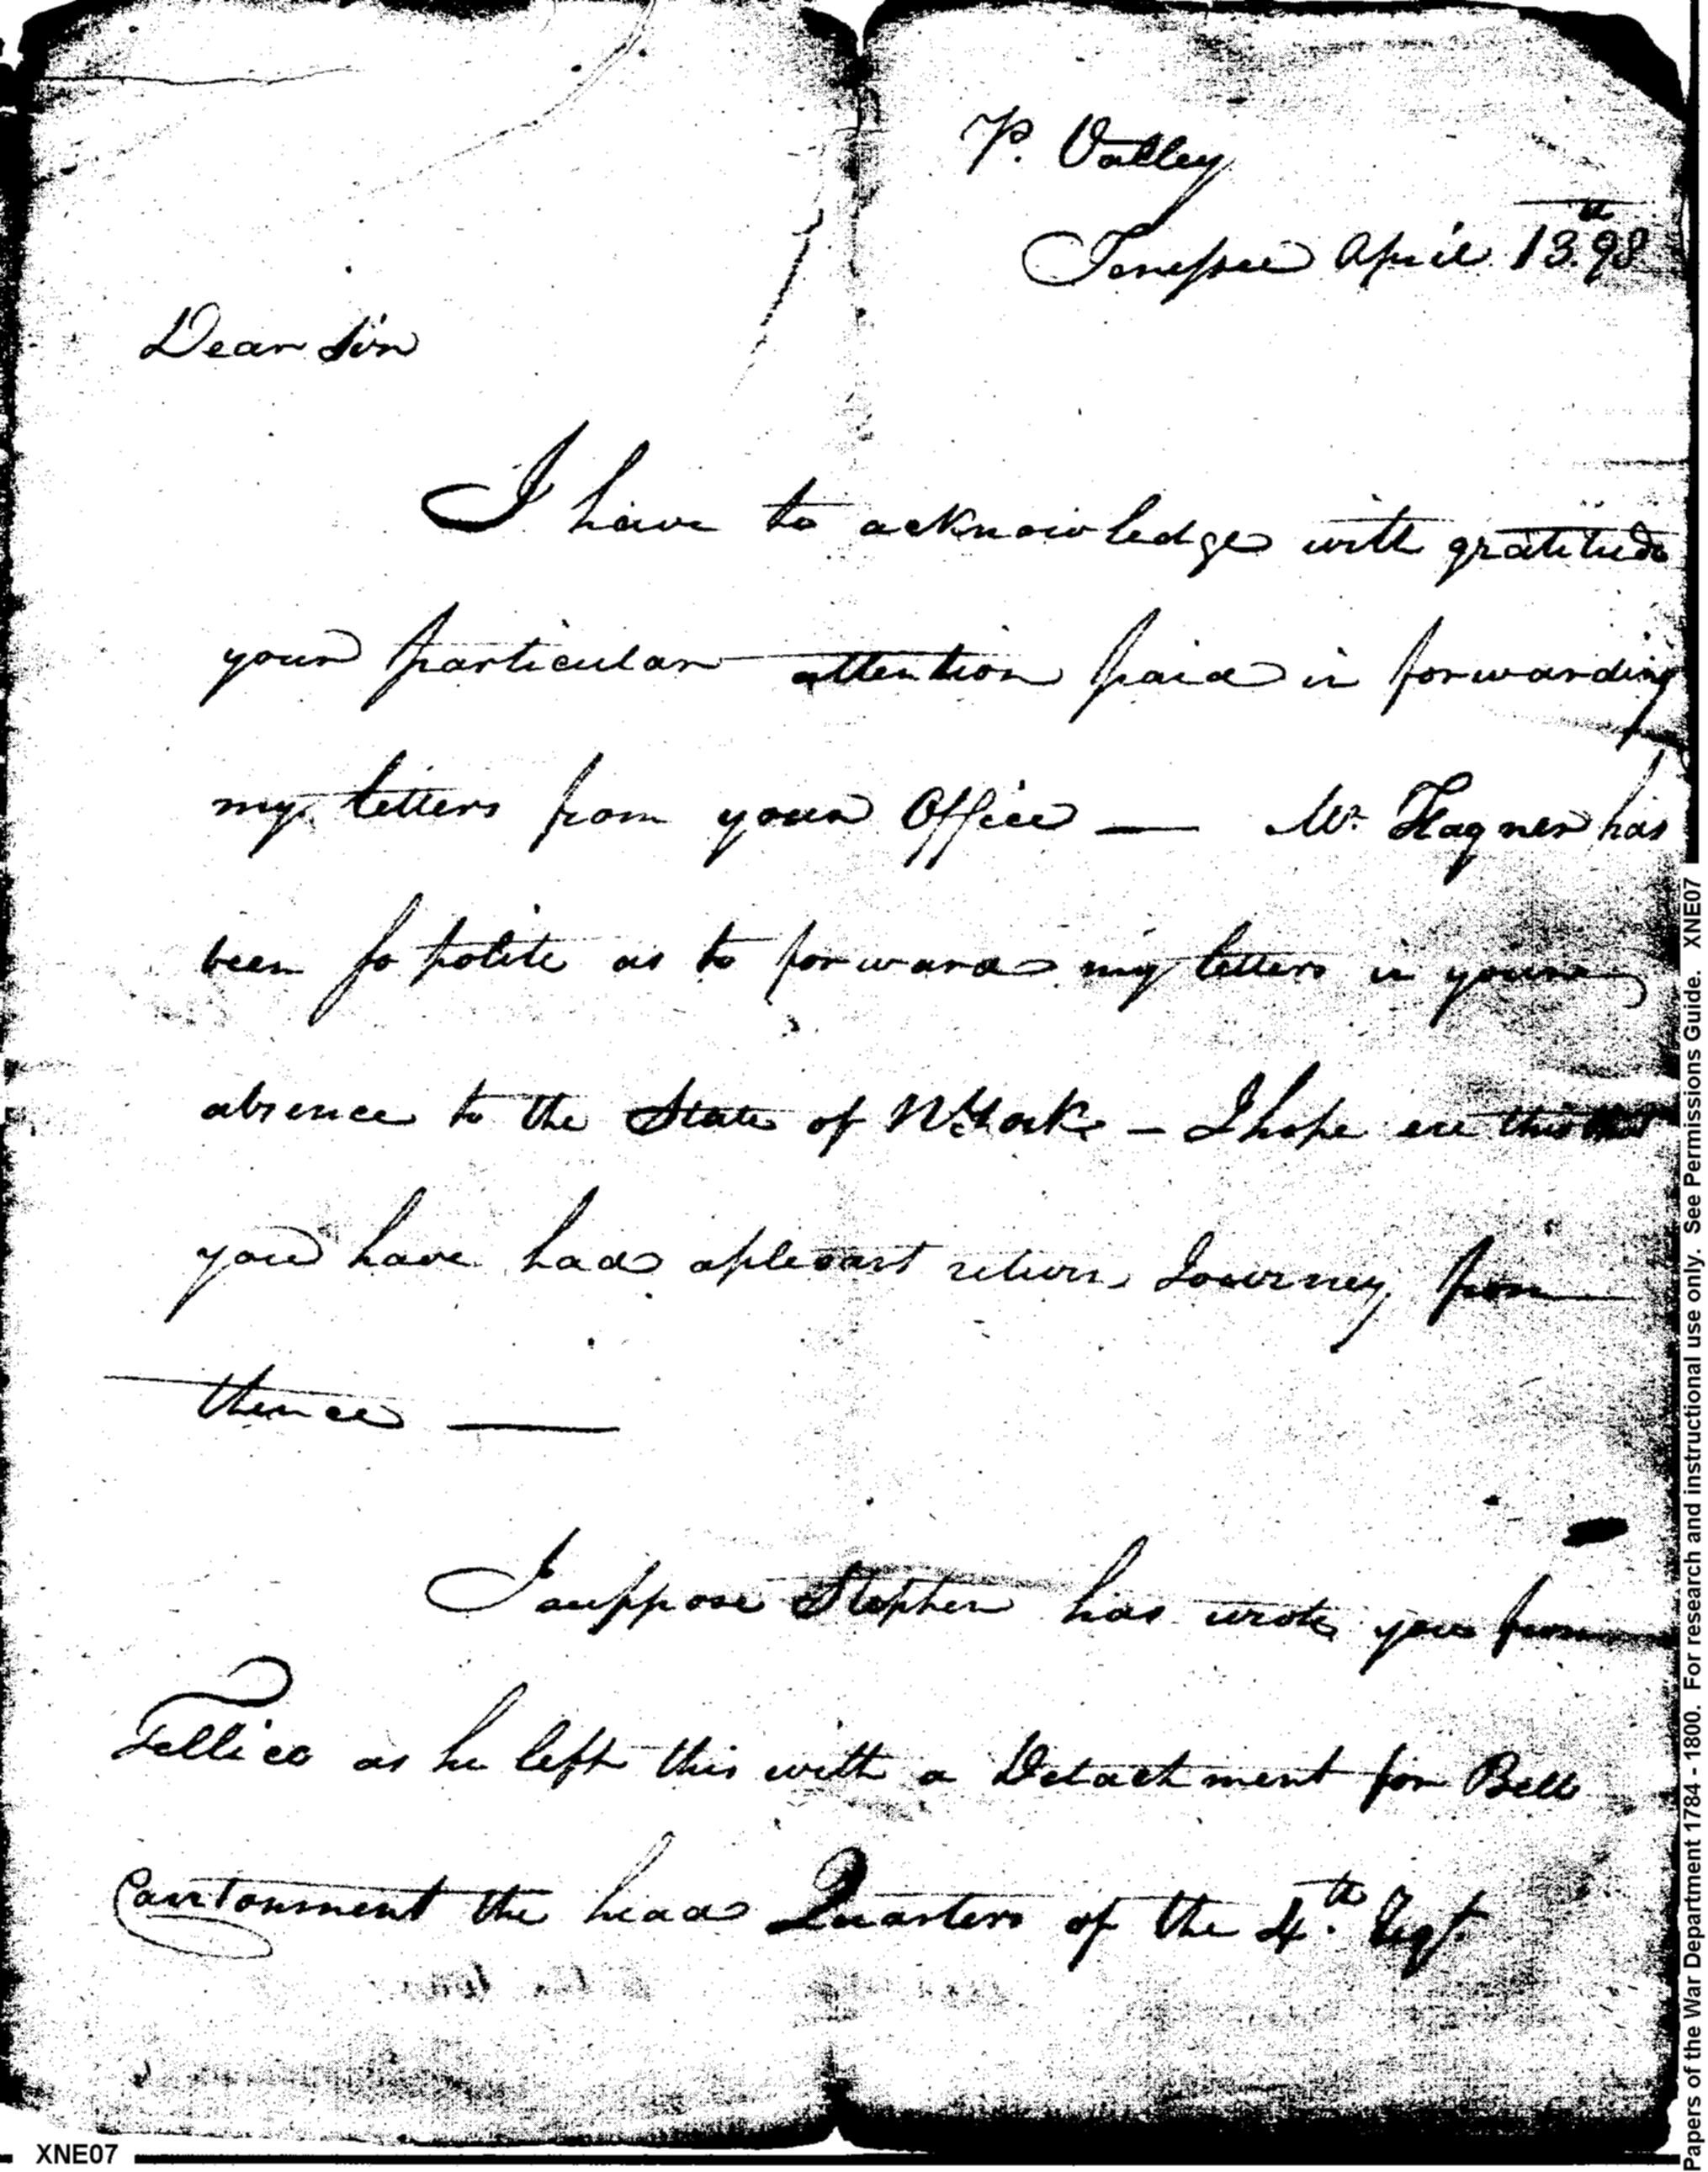 P. Valley
Tenessee April 13.th 98
Dear Sir
I have to acknowledge with gratitude
your particular attention paid in forwarding
my letters from your Office — Mr. Hagner has
been so polite as to forward my letters in your
absence to the State of N. York — I hope ere this that
you have had apleasant return Journey from
thence —
I suppose Stephen has wrote you from
Tellico as he left this with a Detachment for Bell
Cantonment the head Quarters of the 4.th Regt.
XNE07
Papers of the War Department 1784 - 1800. For research and instructional use only. See Permissions Guide. XNE07